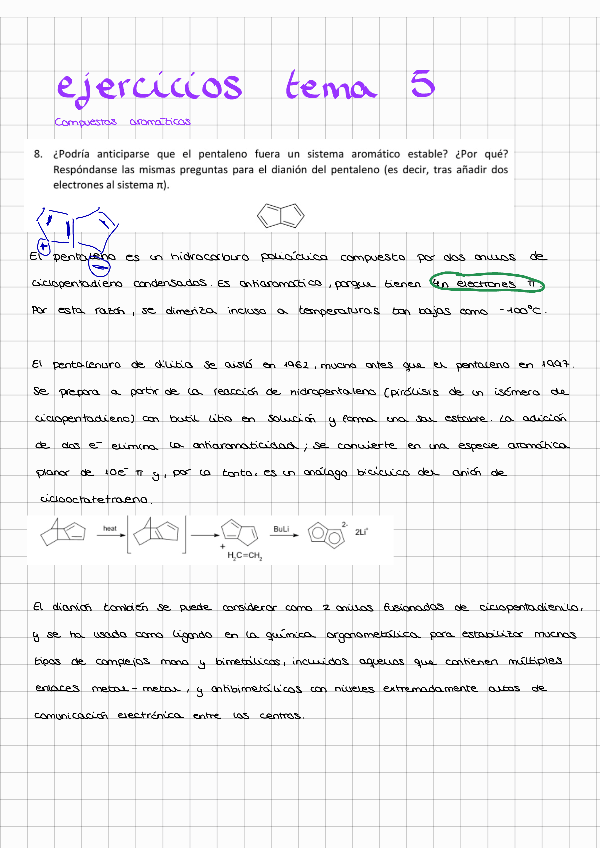 ejercicios tema 5
Compuestos aromáticos
8. ¿Podría anticiparse que el pentaleno fuera un sistema aromático estable? ¿Por qué?
Respóndanse las mismas preguntas para el dianión del pentaleno (es decir, tras añadir dos
electrones al sistema π).
El pentaleno es un hidrocarburo policíclico compuesto por dos anillos de
ciclopentadieno condensados. Es antiaromático, porque tienen 4n electrones π
Por esta razón, se dimeriza incluso a temperaturas tan bajas como -100°C.
El pentalenuro de dilitio se aisló en 1962, mucho antes que el pentaleno en 1997.
Se prepara a partir de la reacción de hidropentaleno (pirólisis de un isómero de
ciclopentadieno) con butil litio en solución y forma una sal estable. La adición
de dos e⁻ elimina la antiaromaticidad; se convierte en una especie aromática
planar de 10e⁻ π y, por lo tanto, es un análogo bicíclico del anión de
ciclooctatetraeno.
heat
BuLi
2-
2Li⁺
+
H₂C=CH₂
El dianión también se puede considerar como 2 anillos fusionados de ciclopentadienilo,
y se ha usado como ligando en la química organometálica para estabilizar muchos
tipos de complejos mono y bimetálicos, incluidos aquellos que contienen múltiples
enlaces metal-metal, y antibimetálicos con niveles extremadamente altos de
comunicación electrónica entre los centros.